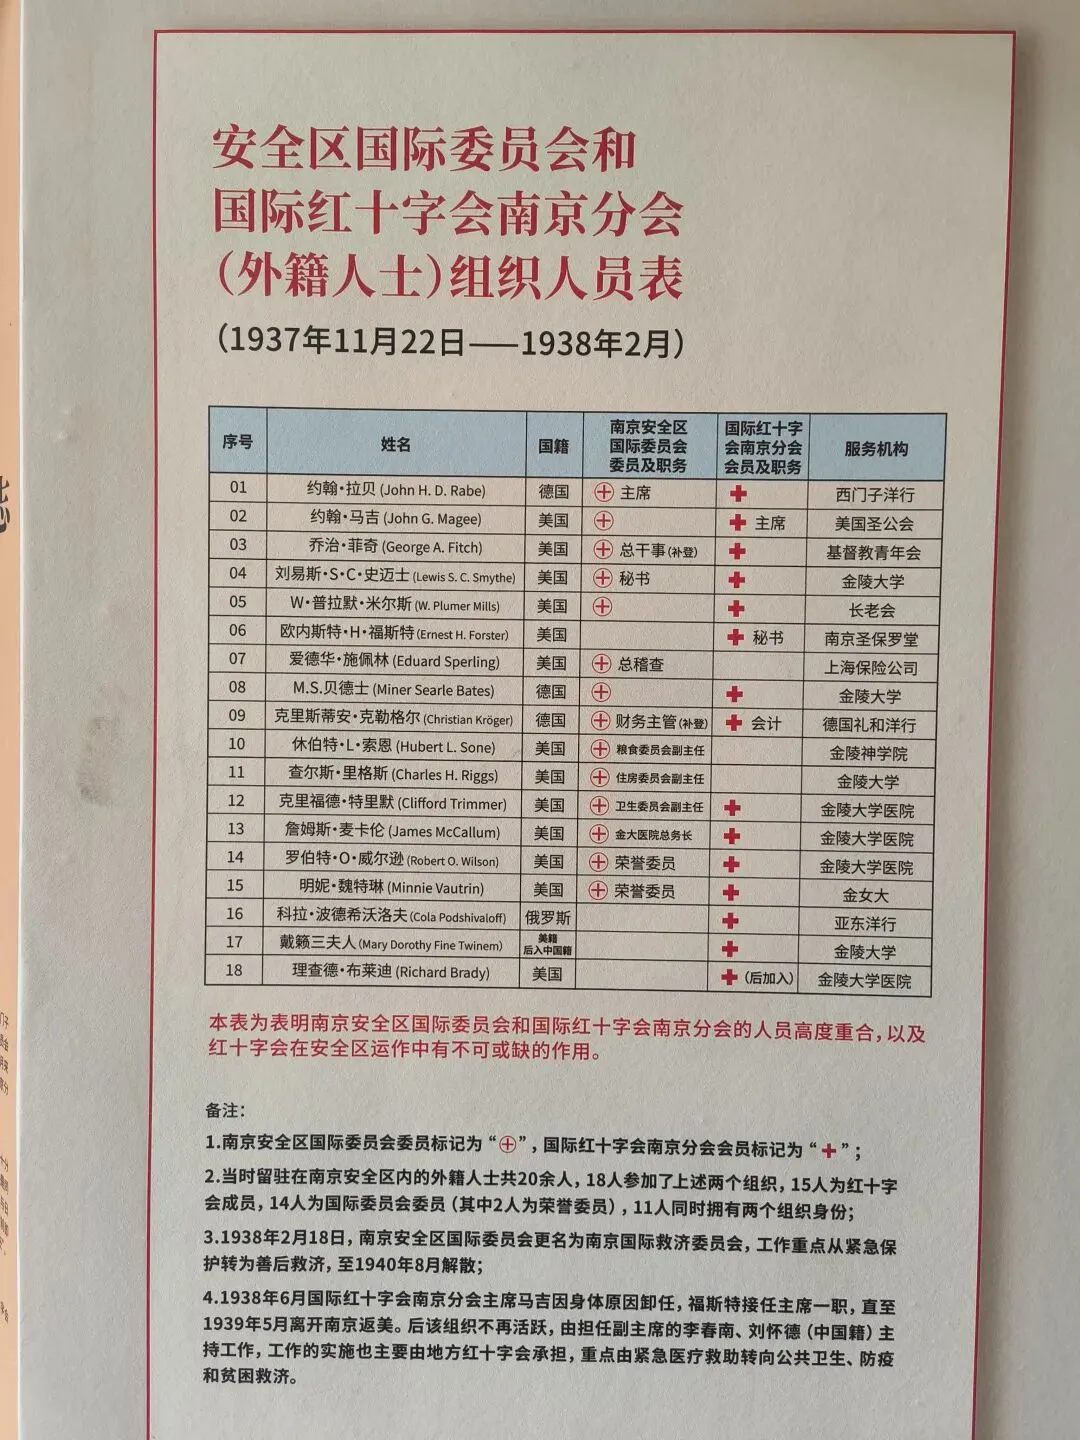 安全区国际委员会和
国际红十字会南京分会
（外籍人士）组织人员表
（1937年11月22日——1938年2月）
序号 姓名 国籍 南京安全区国际委员会委员及职务 国际红十字会南京分会会员及职务 服务机构
01 约翰·拉贝 (John H. D. Rabe) 德国 ⊕ 主席 ✚ 西门子洋行
02 约翰·马吉 (John G. Magee) 美国 ⊕ ✚ 主席 美国圣公会
03 乔治·菲奇 (George A. Fitch) 美国 ⊕ 总干事(补登) ✚ 基督教青年会
04 刘易斯·S·C·史迈士 (Lewis S. C. Smythe) 美国 ⊕ 秘书 ✚ 金陵大学
05 W·普拉默·米尔斯 (W. Plumer Mills) 美国 ⊕ ✚ 长老会
06 欧内斯特·H·福斯特 (Ernest H. Forster) 美国 ✚ 秘书 南京圣保罗堂
07 爱德华·施佩林 (Eduard Sperling) 美国 ⊕ 总稽查 上海保险公司
08 M.S.贝德士 (Miner Searle Bates) 德国 ⊕ ✚ 金陵大学
09 克里斯蒂安·克勒格尔 (Christian Kröger) 德国 ⊕ 财务主管(补登) ✚ 会计 德国礼和洋行
10 休伯特·L·索恩 (Hubert L. Sone) 美国 ⊕ 粮食委员会副主任 金陵神学院
11 查尔斯·里格斯 (Charles H. Riggs) 美国 ⊕ 住房委员会副主任 金陵大学
12 克里福德·特里默 (Clifford Trimmer) 美国 ⊕ 卫生委员会副主任 ✚ 金陵大学医院
13 詹姆斯·麦卡伦 (James McCallum) 美国 ⊕ 金大医院总务长 ✚ 金陵大学医院
14 罗伯特·O·威尔逊 (Robert O. Wilson) 美国 ⊕ 荣誉委员 ✚ 金陵大学医院
15 明妮·魏特琳 (Minnie Vautrin) 美国 ⊕ 荣誉委员 ✚ 金女大
16 科拉·波德希沃洛夫 (Cola Podshivaloff) 俄罗斯 ✚ 亚东洋行
17 戴籁三夫人 (Mary Dorothy Fine Twinem) 美籍后入中国籍 ✚ 金陵大学
18 理查德·布莱迪 (Richard Brady) 美国 ✚ (后加入) 金陵大学医院
本表为表明南京安全区国际委员会和国际红十字会南京分会的人员高度重合，以及
红十字会在安全区运作中有不可或缺的作用。
备注：
1.南京安全区国际委员会委员标记为“⊕”，国际红十字会南京分会会员标记为“✚”；
2.当时留驻在南京安全区内的外籍人士共20余人，18人参加了上述两个组织，15人为红十字
会成员，14人为国际委员会委员（其中2人为荣誉委员），11人同时拥有两个组织身份；
3.1938年2月18日，南京安全区国际委员会更名为南京国际救济委员会，工作重点从紧急保
护转为善后救济，至1940年8月解散；
4.1938年6月国际红十字会南京分会主席马吉因身体原因卸任，福斯特接任主席一职，直至
1939年5月离开南京返美。后该组织不再活跃，由担任副主席的李春南、刘怀德（中国籍）主
持工作，工作的实施也主要由地方红十字会承担，重点由紧急医疗救助转向公共卫生、防疫
和贫困救济。